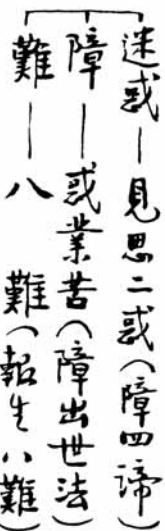 迷惑—見思二惑(障四諦)
障—惑業苦(障出世法)
難—八難(報生八難)